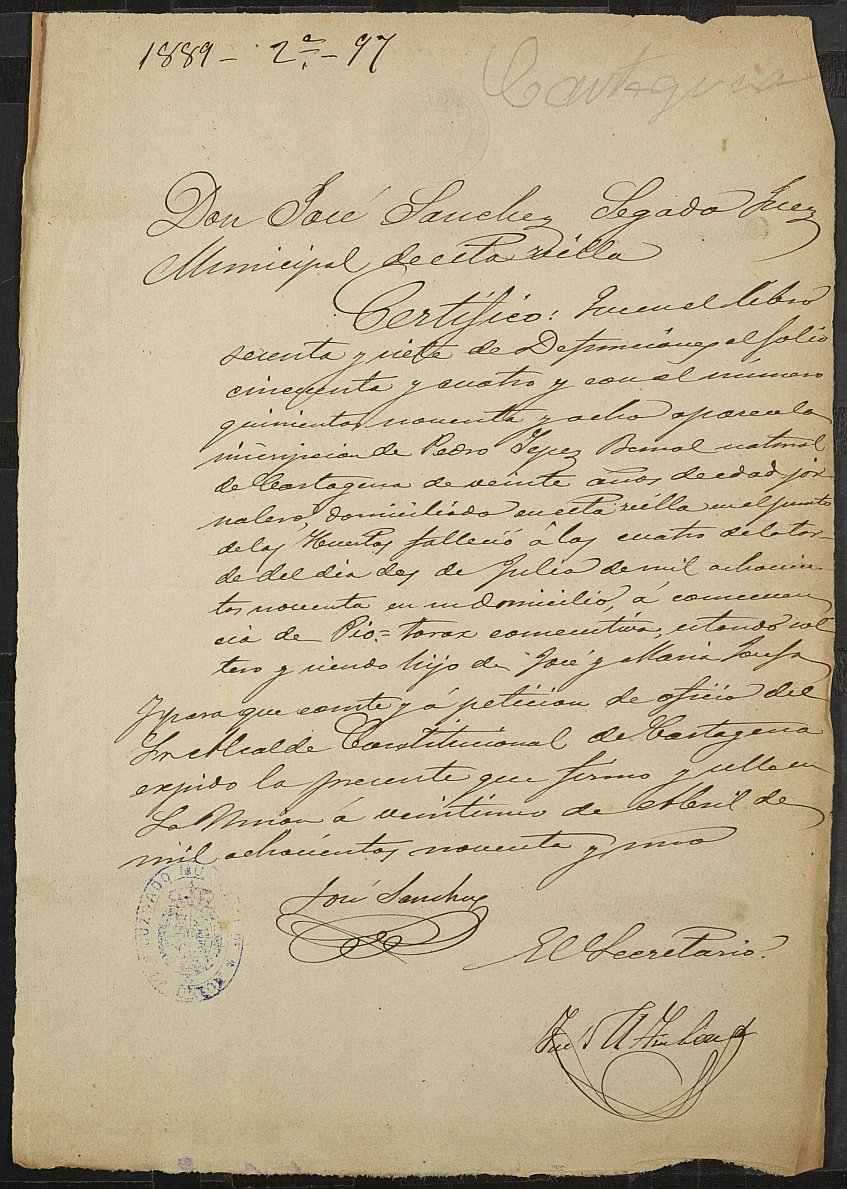 1889 - 2ª - 97
Cartagena
Don José Sanchez Segado Juez
Municipal de esta villa
Certifico: Que en el libro
setenta y siete de Defunciones al folio
cincuenta y cuatro y con el número
quinientos noventa y ocho aparece la
inscripcion de Pedro Yepez Bernal natural
de Cartagena de veinte años de edad jor-
nalero, domiciliado en esta villa en el punto
de las Huertas falleció á las cuatro de la tar-
de del dia dos de Julio de mil ochocien-
tos noventa en su domicilio, á consecuen
cia de Pio-torax consecutiva, estando sol
tero y siendo hijo de José y Maria Josefa
Y para que conste y á peticion de oficio del
Sr Alcalde Constitucional de Cartagena
expido la presente que firmo y sello en
La Union á veintiuno de Abril de
mil ochocientos noventa y uno
José Sanchez
El Secretario.
JUZGADO MUNICIPAL